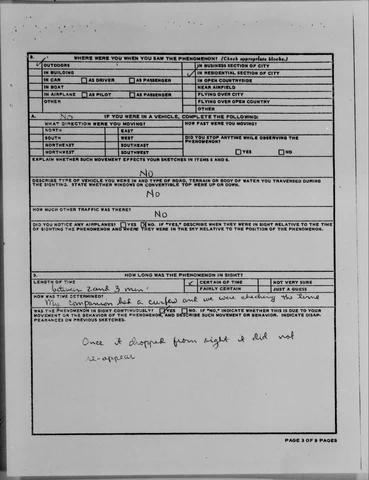 8. WHERE WERE YOU WHEN YOU SAW THE PHENOMENON? (Check appropriate blocks.)
OUTDOORS IN BUSINESS SECTION OF CITY
IN BUILDING IN RESIDENTIAL SECTION OF CITY
IN CAR AS DRIVER AS PASSENGER IN OPEN COUNTRYSIDE
IN BOAT NEAR AIRFIELD
IN AIRPLANE AS PILOT AS PASSENGER FLYING OVER CITY
OTHER FLYING OVER OPEN COUNTRY
OTHER
A. No IF YOU WERE IN A VEHICLE, COMPLETE THE FOLLOWING:
WHAT DIRECTION WERE YOU MOVING? HOW FAST WERE YOU MOVING?
NORTH EAST
SOUTH WEST DID YOU STOP ANYTIME WHILE OBSERVING THE
NORTHEAST SOUTHEAST PHENOMENON?
NORTHWEST SOUTHWEST YES NO
EXPLAIN WHETHER SUCH MOVEMENT EFFECTS YOUR SKETCHES IN ITEMS 5 AND 6.
NO
DESCRIBE TYPE OF VEHICLE YOU WERE IN AND TYPE OF ROAD, TERRAIN OR BODY OF WATER YOU TRAVERSED DURING
THE SIGHTING. STATE WHETHER WINDOWS OR CONVERTIBLE TOP WERE UP OR DOWN.
No
HOW MUCH OTHER TRAFFIC WAS THERE?
No
DID YOU NOTICE ANY AIRPLANES? YES NO. IF "YES," DESCRIBE WHEN THEY WERE IN SIGHT RELATIVE TO THE TIME
OF SIGHTING THE PHENOMENON AND WHERE THEY WERE IN THE SKY RELATIVE TO THE POSITION OF THE PHENOMENON.
9. HOW LONG WAS THE PHENOMENON IN SIGHT?
LENGTH OF TIME CERTAIN OF TIME NOT VERY SURE
between 2 and 3 min FAIRLY CERTAIN JUST A GUESS
HOW WAS TIME DETERMINED?
My companion had a curfew and we were checking the time
WAS THE PHENOMENON IN SIGHT CONTINUOUSLY? YES NO. IF "NO," INDICATE WHETHER THIS IS DUE TO YOUR
MOVEMENT OR THE BEHAVIOR OF THE PHENOMENON, AND DESCRIBE SUCH MOVEMENT OR BEHAVIOR. INDICATE DISAP-
PEARANCES ON PREVIOUS SKETCHES.
Once it dropped from sight it did not
re-appear
PAGE 3 OF 9 PAGES